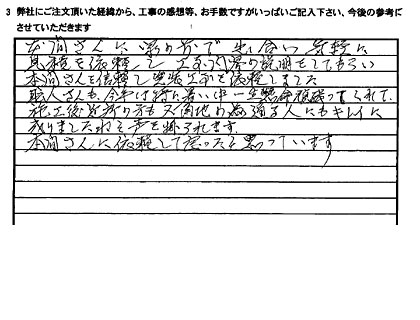 3 弊社にご注文頂いた経緯から、工事の感想等、お手数ですがいっぱいご記入下さい、今後の参考に
させていただきます
本間さんに 出合い 気軽に
見積を依頼して 工事内容の説明をしてもらい
本間さんを信頼し塗装工事を依頼しました
職人さんも、今年は特に暑い中一生懸命頑張って
施工後 近所の方も 通る人にもキレイに
成りましたねと声を掛られます。
本間さんに依頼して良かったと思っています